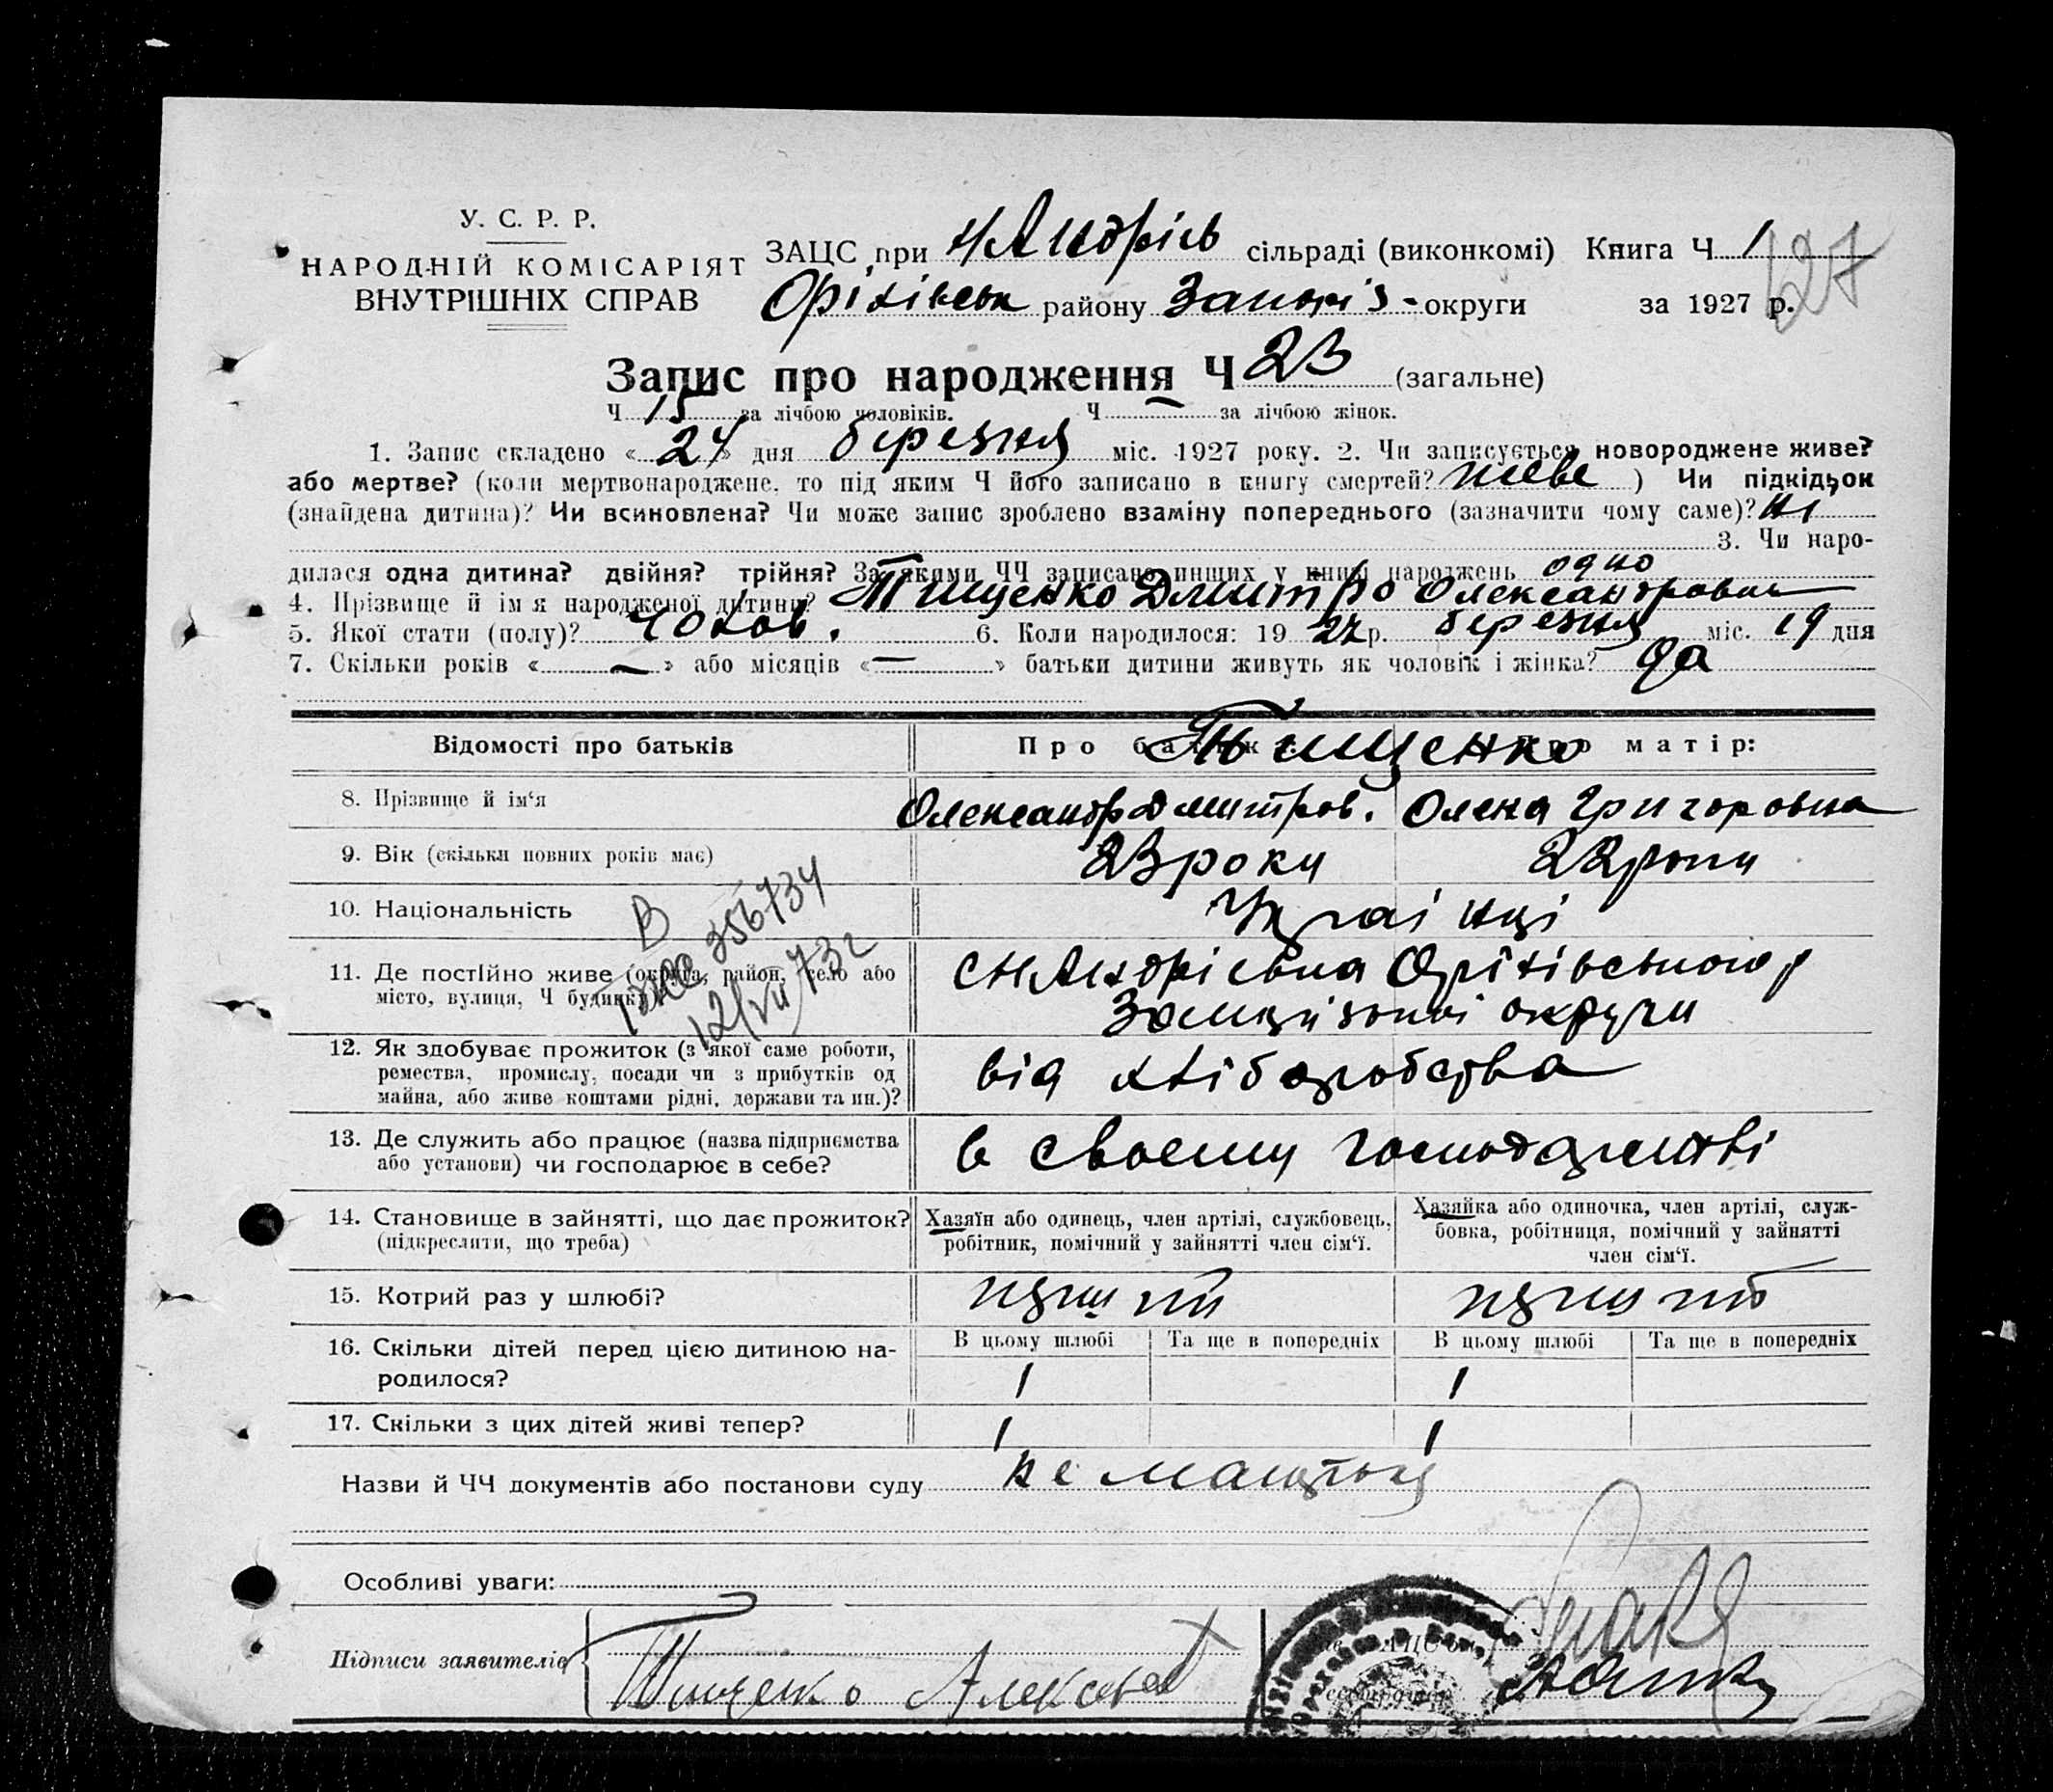 У. С. Р. Р.
НАРОДНІЙ КОМІСАРІЯТ
ВНУТРІШНІХ СПРАВ
ЗАЦС при Н/Андріїв сільраді (виконкомі) Книга Ч 1
127
Оріхівськ району Запоріз- округи за 1927 р.
Запис про народження Ч 23 (загальне)
Ч 15 за лічбою чоловіків. Ч — за лічбою жінок.
1. Запис складено « 24 » дня березня міс. 1927 року. 2. Чи записується новороджене живе?
або мертве? (коли мертвонароджене, то під яким Ч його записано в книгу смертей? живе ) Чи підкідьок
(знайдена дитина)? Чи всиновлена? Чи може запис зроблено взаміну попереднього (зазначити чому саме)? ні
3. Чи наро-
дилася одна дитина? двійня? трійня? За якими ЧЧ записано инших у книзі народжень одно
4. Прізвище й імя народженої дитини? Тищенко Дмитро Олександрович
5. Якої стати (полу)? чолов. 6. Коли народилося: 19 27 р. березня міс. 19 дня
7. Скільки років « — » або місяців « — » батьки дитини живуть як чоловік і жінка? да
Відомості про батьків Про батька: Про матір:
Тищенко
8. Прізвище й ім‘я Олександр Дмитров. Олена Григоровна
9. Вік (скільки повних років має) 23 роки 22 роки
10. Національність Українці
11. Де постійно живе (округа, район, село або
місто, вулиця, Ч будинку)
с Н Андрієвка Оріхівського р
Запорізької округи
В
356734
12/VII 73 г
12. Як здобуває прожиток (з якої саме роботи,
ремества, промислу, посади чи з прибутків од
майна, або живе коштами рідні, держави та ин.)?
від хліборобства
13. Де служить або працює (назва підприємства
або установи) чи господарює в себе?
в своему господарстві
14. Становище в зайнятті, що дає прожиток?
(підкреслити, що треба)
Хазяїн або одинець, член артілі, службовець,
робітник, помічний у зайнятті член сім‘ї.
Хазяйка або одиночка, член артілі, служ-
бовка, робітниця, помічний у зайнятті
член сім‘ї.
15. Котрий раз у шлюбі? перший перший
16. Скільки дітей перед цією дитиною на-
родилося?
В цьому шлюбі Та ще в попередніх В цьому шлюбі Та ще в попередніх
1 1
17. Скільки з цих дітей живі тепер? 1 1
Назви й ЧЧ документів або постанови суду не мається
Особливі уваги:
Підписи заявителів Тищенко